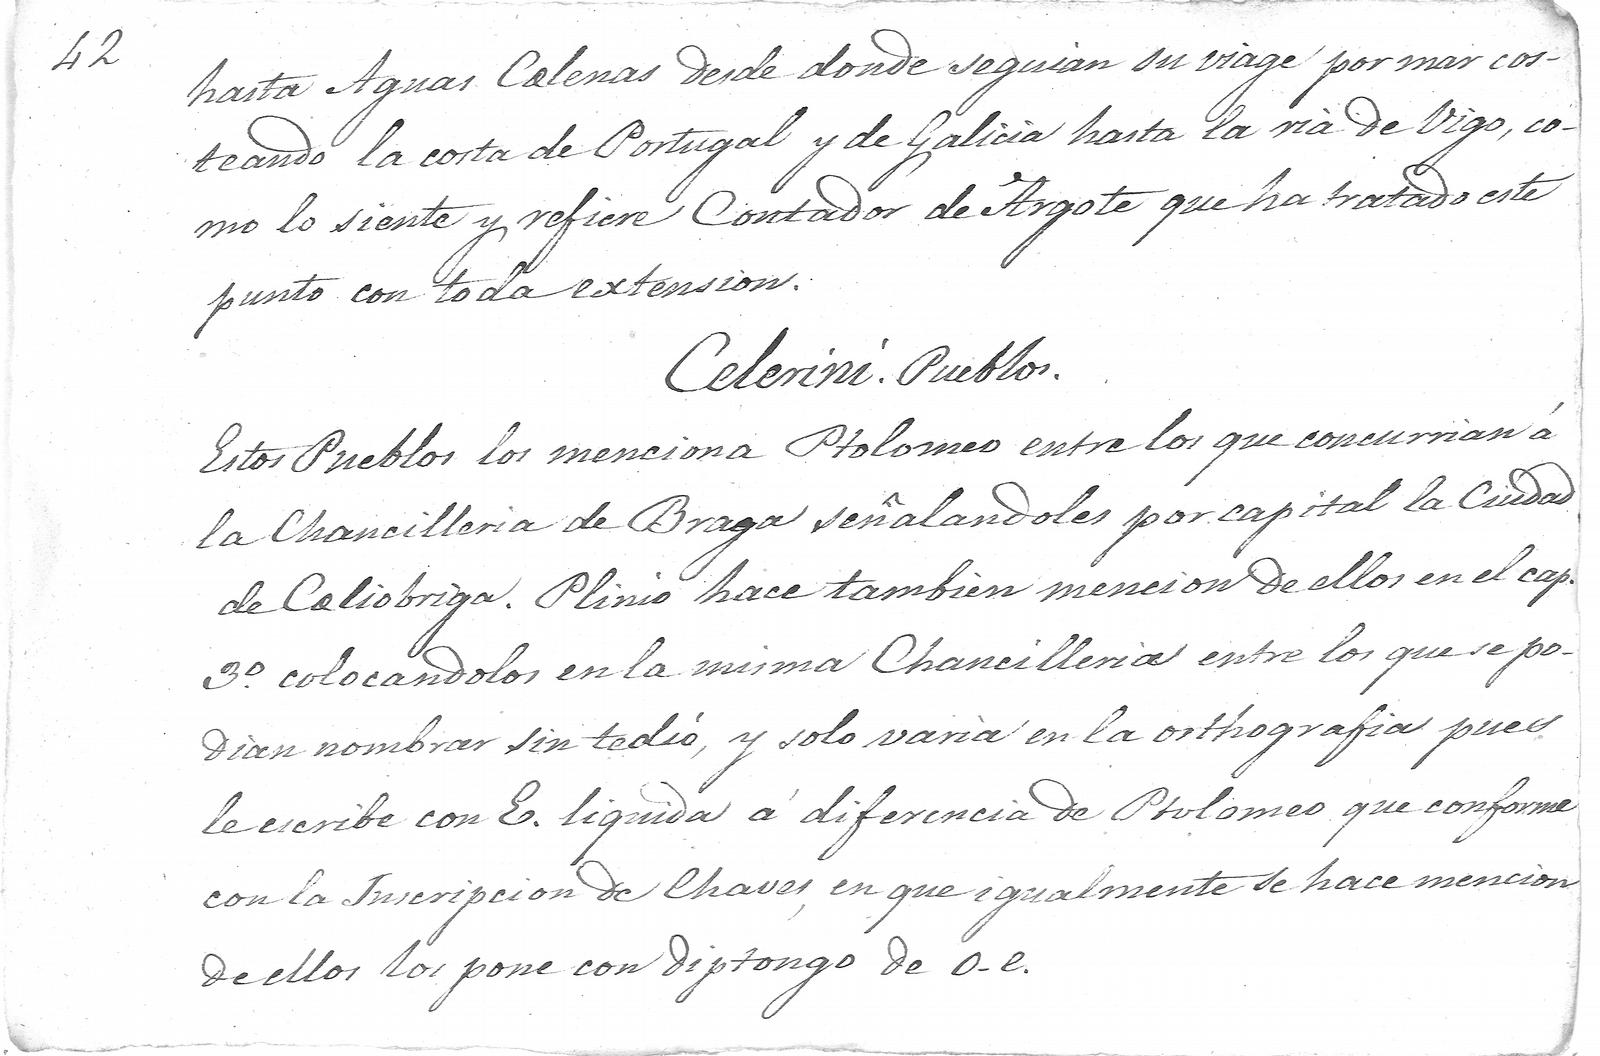 42
hasta Aguas Cœlenas desde donde seguian su viage por mar cos-
teando la costa de Portugal y de Galicia hasta la ria de Vigo, co-
mo lo siente y refiere Contador de Argote que ha tratado este
punto con toda extension.
Celerini. Pueblos.
Estos Pueblos los menciona Ptolomeo entre los que concurrian á
la Chancilleria de Braga señalandoles por capital la Ciudad
de Cœliobriga. Plinio hace tambien mencion de ellos en el cap.
3º. colocandolos en la misma Chancilleria entre los que se po-
dian nombrar sin tedió, y solo varia en la orthografia pues
le escribe con E. liquida á diferencia de Ptolomeo que conforme
con la Inscripcion de Chaves, en que igualmente se hace mencion
de ellos los pone con diptongo de o-e.